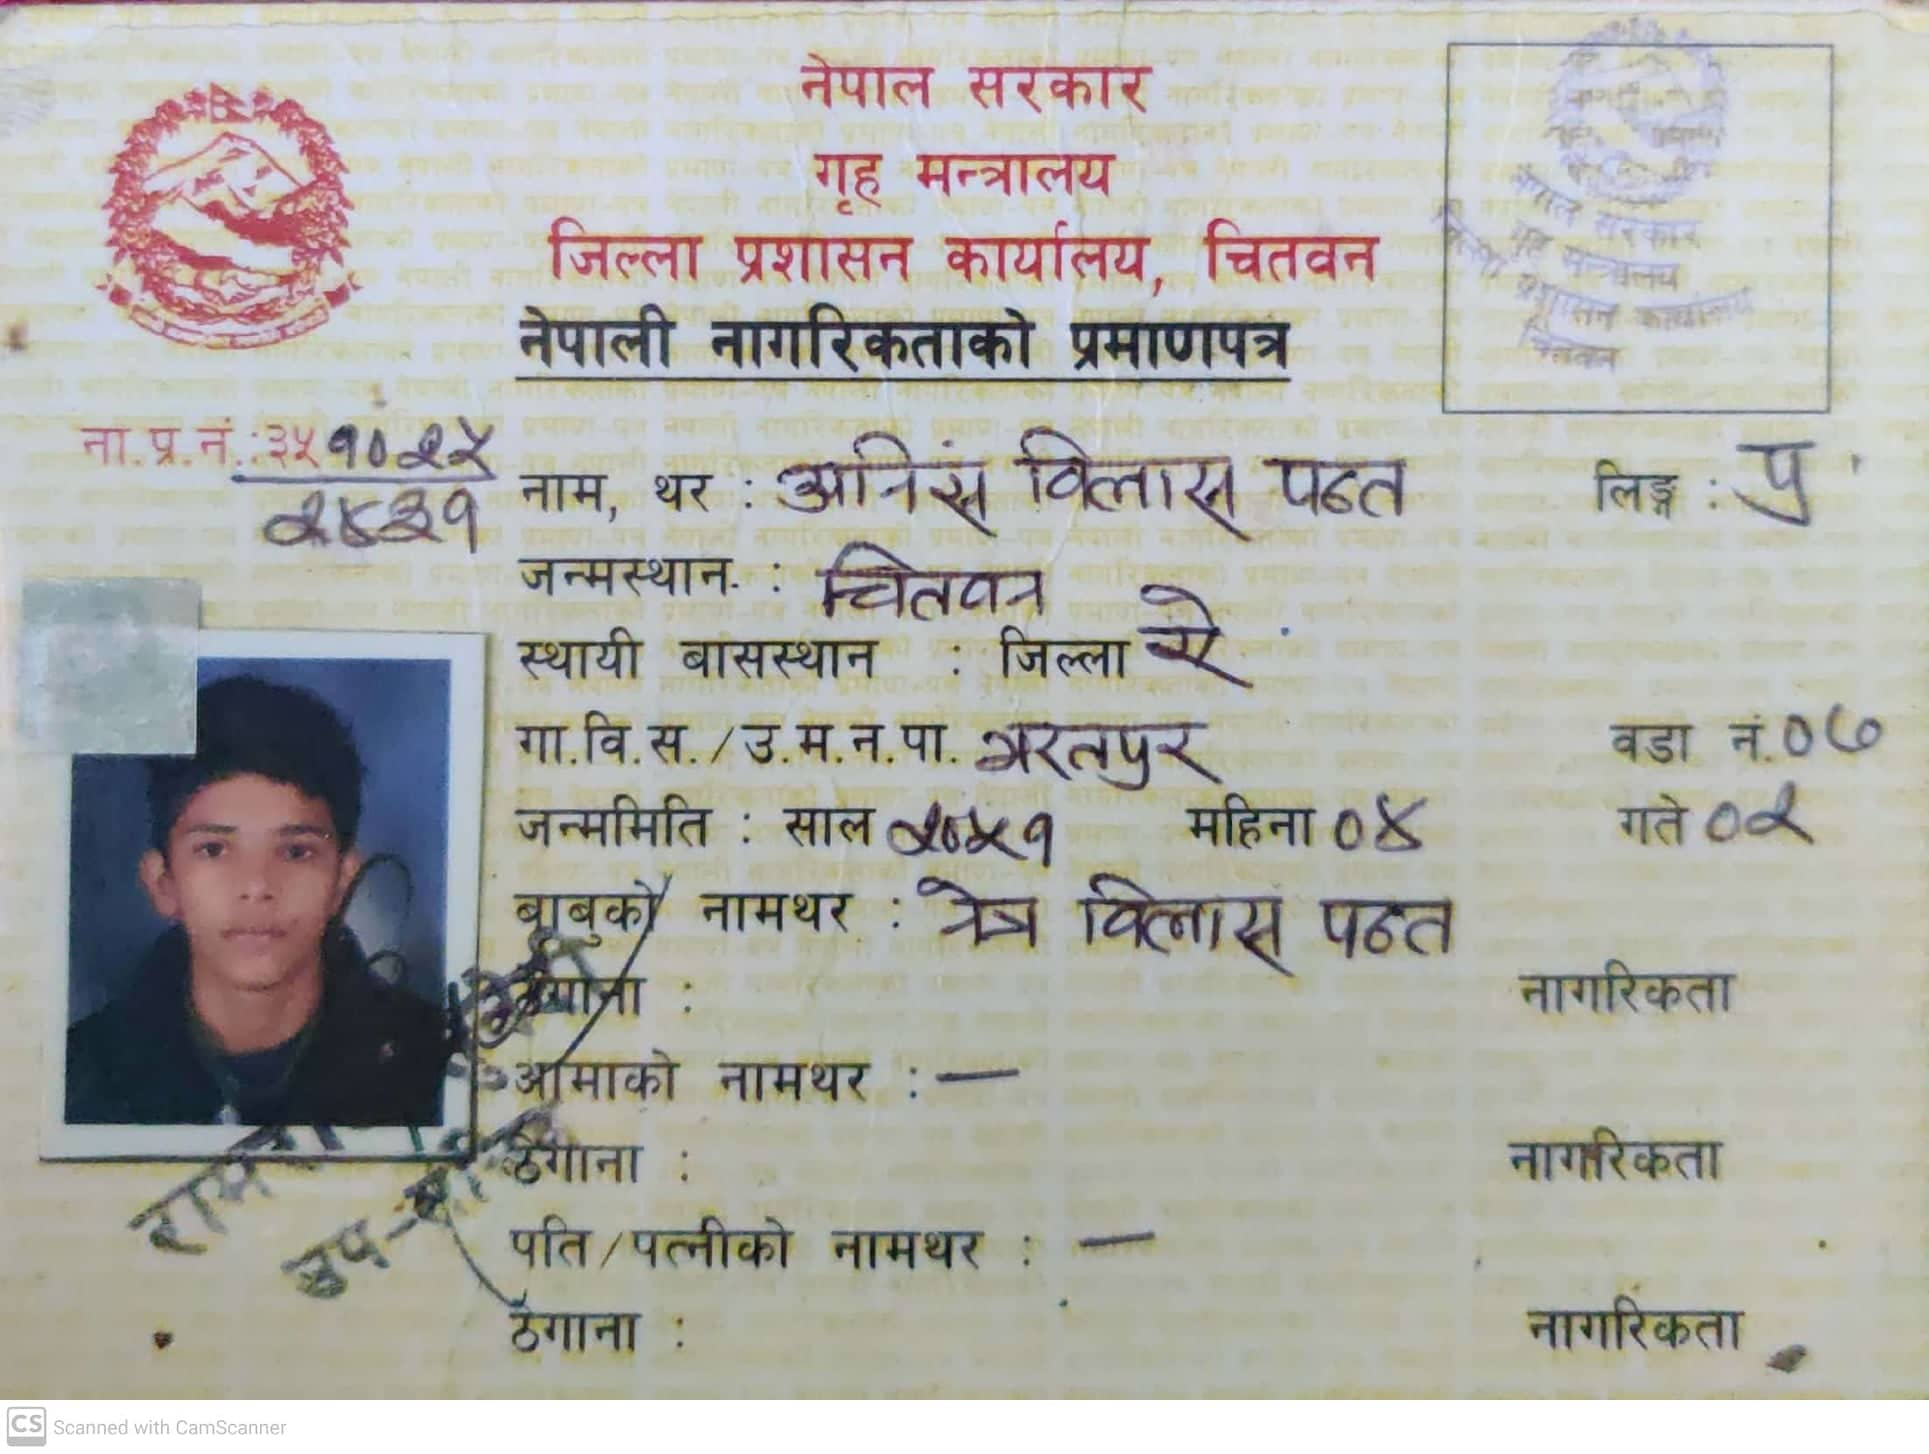 नेपाल सरकार
गृह मन्त्रालय
जिल्ला प्रशासन कार्यालय, चितवन
नेपाली नागरिकताको प्रमाणपत्र
नेपाल सरकार
गृह मन्त्रालय
जिल्ला प्रशासन कार्यालय
चितवन
ना.प्र.नं.:३५१०२५
२४३१
नाम, थर : अनिसं विलास पन्त लिङ्ग : पु
जन्मस्थान : चितवन
स्थायी बासस्थान : जिल्ला ऐ
गा.वि.स./उ.म.न.पा. भरतपुर वडा नं.०७
जन्ममिति : साल २०५१ महिना ०४ गते ०२
बाबुको नामथर : नेत्र विलास पन्त
ठेगाना : नागरिकता
आमाको नामथर : —
ठेगाना : नागरिकता
पति/पत्नीको नामथर : —
ठेगाना : नागरिकता
CS Scanned with CamScanner